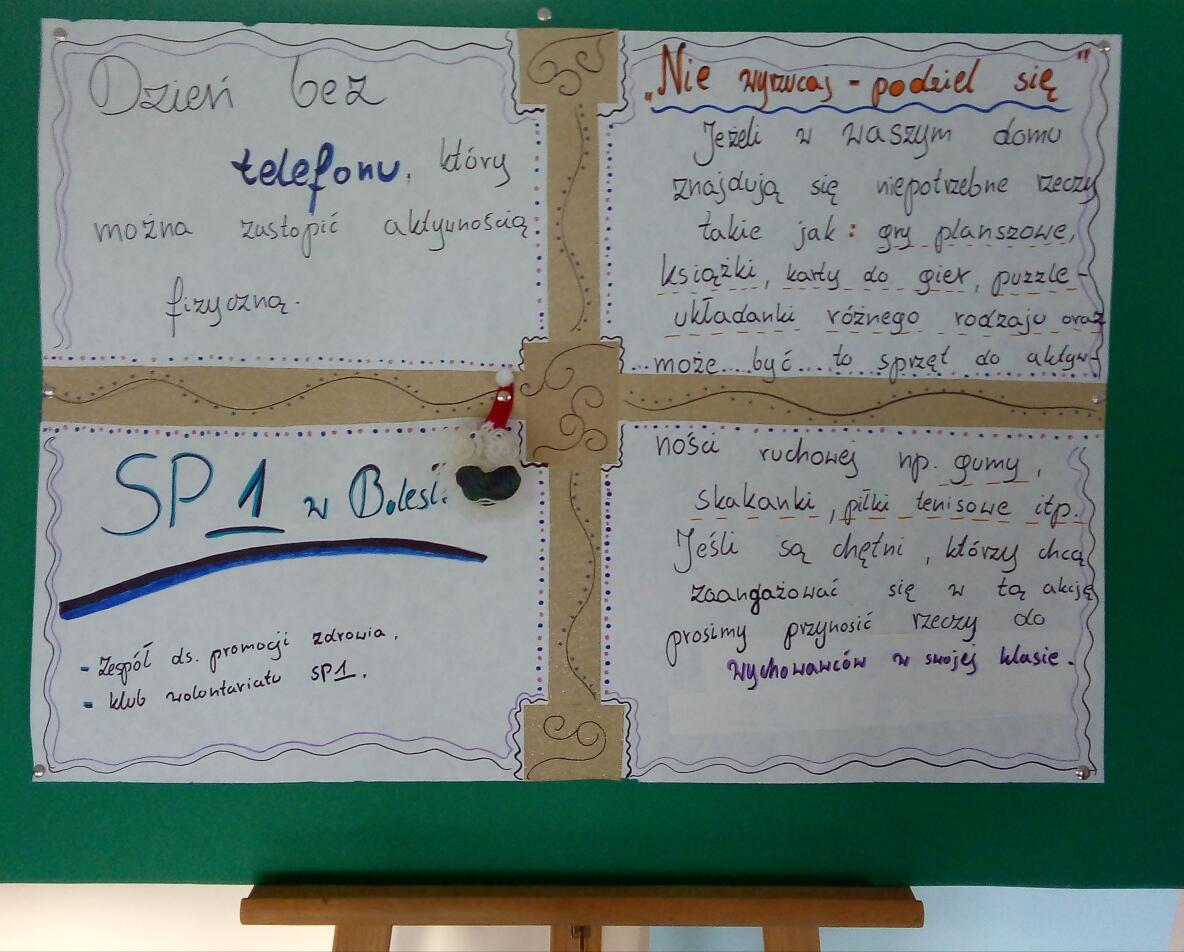 Dzień bez
telefonu, który
można zastąpić aktywnością
fizyczną.
SP 1 w Bolesł.
- Zespół ds. promocji zdrowia,
- klub wolontariatu SP1.
„Nie wyrzucaj - podziel się"
Jeżeli w waszym domu
znajdują się niepotrzebne rzeczy
takie jak: gry planszowe,
książki, karty do gier, puzzle-
układanki różnego rodzaju oraz
może być to sprzęt do aktyw-
ności ruchowej np. gumy,
skakanki, piłki tenisowe itp.
Jeśli są chętni, którzy chcą
zaangażować się w tą akcję
prosimy przynosić rzeczy do
wychowawców w swojej klasie.